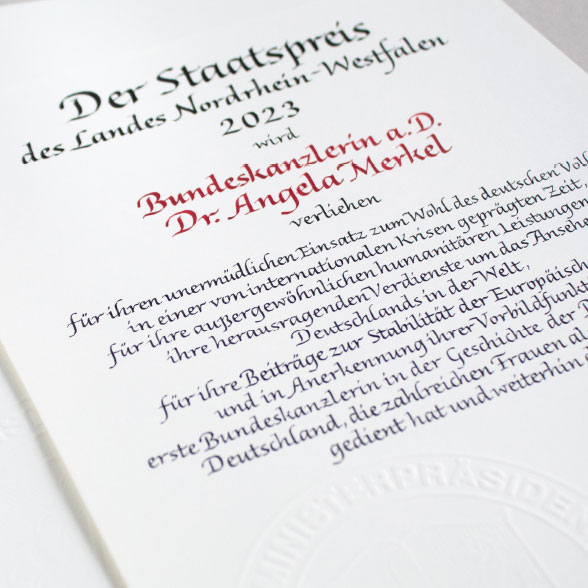 Der Staatspreis
des Landes Nordrhein-Westfalen
2023
wird
Bundeskanzlerin a.D.
Dr. Angela Merkel
verliehen
für ihren unermüdlichen Einsatz zum Wohl des deutschen Vol
in einer von internationalen Krisen geprägten Zeit,
für ihre außergewöhnlichen humanitären Leistungen
ihre herausragenden Verdienste um das Ansehe
Deutschlands in der Welt,
für ihre Beiträge zur Stabilität der Europäisch
und in Anerkennung ihrer Vorbildfunkt
erste Bundeskanzlerin in der Geschichte der
Deutschland, die zahlreichen Frauen a
gedient hat und weiterhin
MINISTERPRÄSIDEN